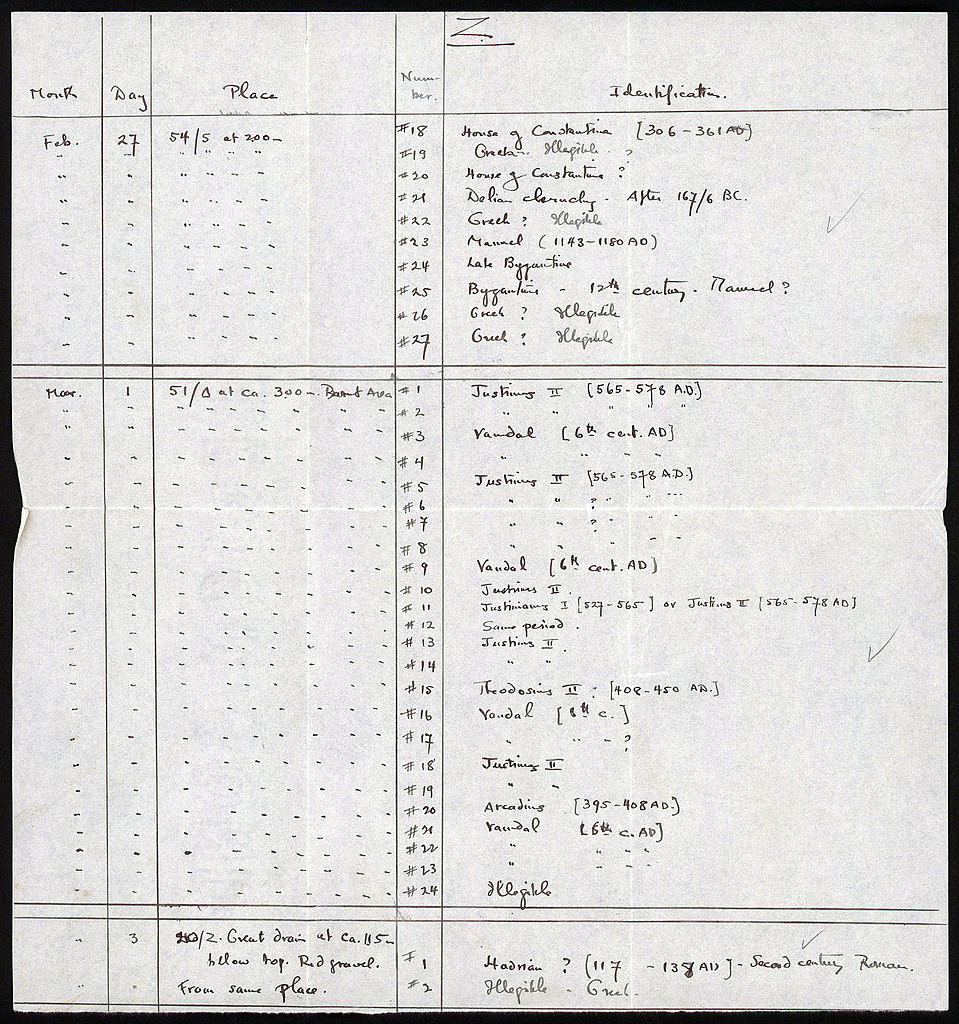 Z.
Month Day Place Num-ber. Identification.
Feb. 27 54/5 at 200m #18 House of Constantine [306-361 AD]
" " " " " " #19 Greek. Illegible. ?
" " " " " " #20 House of Constantine ?
" " " " " " #21 Delian cleruchy. After 167/6 BC.
" " " " " " #22 Greek ? Illegible
" " " " " " #23 Manuel (1143-1180 AD)
" " " " " " #24 Late Byzantine
" " " " " " #25 Byzantine - 12th century. Manuel ?
" " " " " " #26 Greek ? Illegible
" " " " " " #27 Greek ? Illegible
Mar. 1 51/Δ at ca. 300m. Burnt Area #1 Justinus II [565-578 A.D.]
" " " " " " " " #2 " " " " "
" " " " " " " " #3 Vandal [6th cent. AD]
" " " " " " " " #4 " " " "
" " " " " " " " #5 Justinus II [565-578 A.D.]
" " " " " " " " #6 " " ? " "
" " " " " " " " #7 " " ? " "
" " " " " " " " #8 " " " "
" " " " " " " " #9 Vandal [6th cent. AD]
" " " " " " " " #10 Justinus II.
" " " " " " " " #11 Justinianus I [527-565] or Justinus II [565-578 AD]
" " " " " " " " #12 Same period.
" " " " " " " " #13 Justinus II.
" " " " " " " " #14 " "
" " " " " " " " #15 Theodosius II : [408-450 AD.]
" " " " " " " " #16 Vandal [6th c.]
" " " " " " " " #17 " " " ?
" " " " " " " " #18 Justinus II
" " " " " " " " #19 " "
" " " " " " " " #20 Arcadius [395-408 AD.]
" " " " " " " " #21 Vandal [6th c. AD]
" " " " " " " " #22 " " " "
" " " " " " " " #23 " " " "
" " " " " " " " #24 Illegible
" 3 /Z. Great drain at ca. 115m
below top. Red gravel. #1 Hadrian ? (117 - 138 AD] - Second century Roman.
" " From same place. #2 Illegible - Greek.